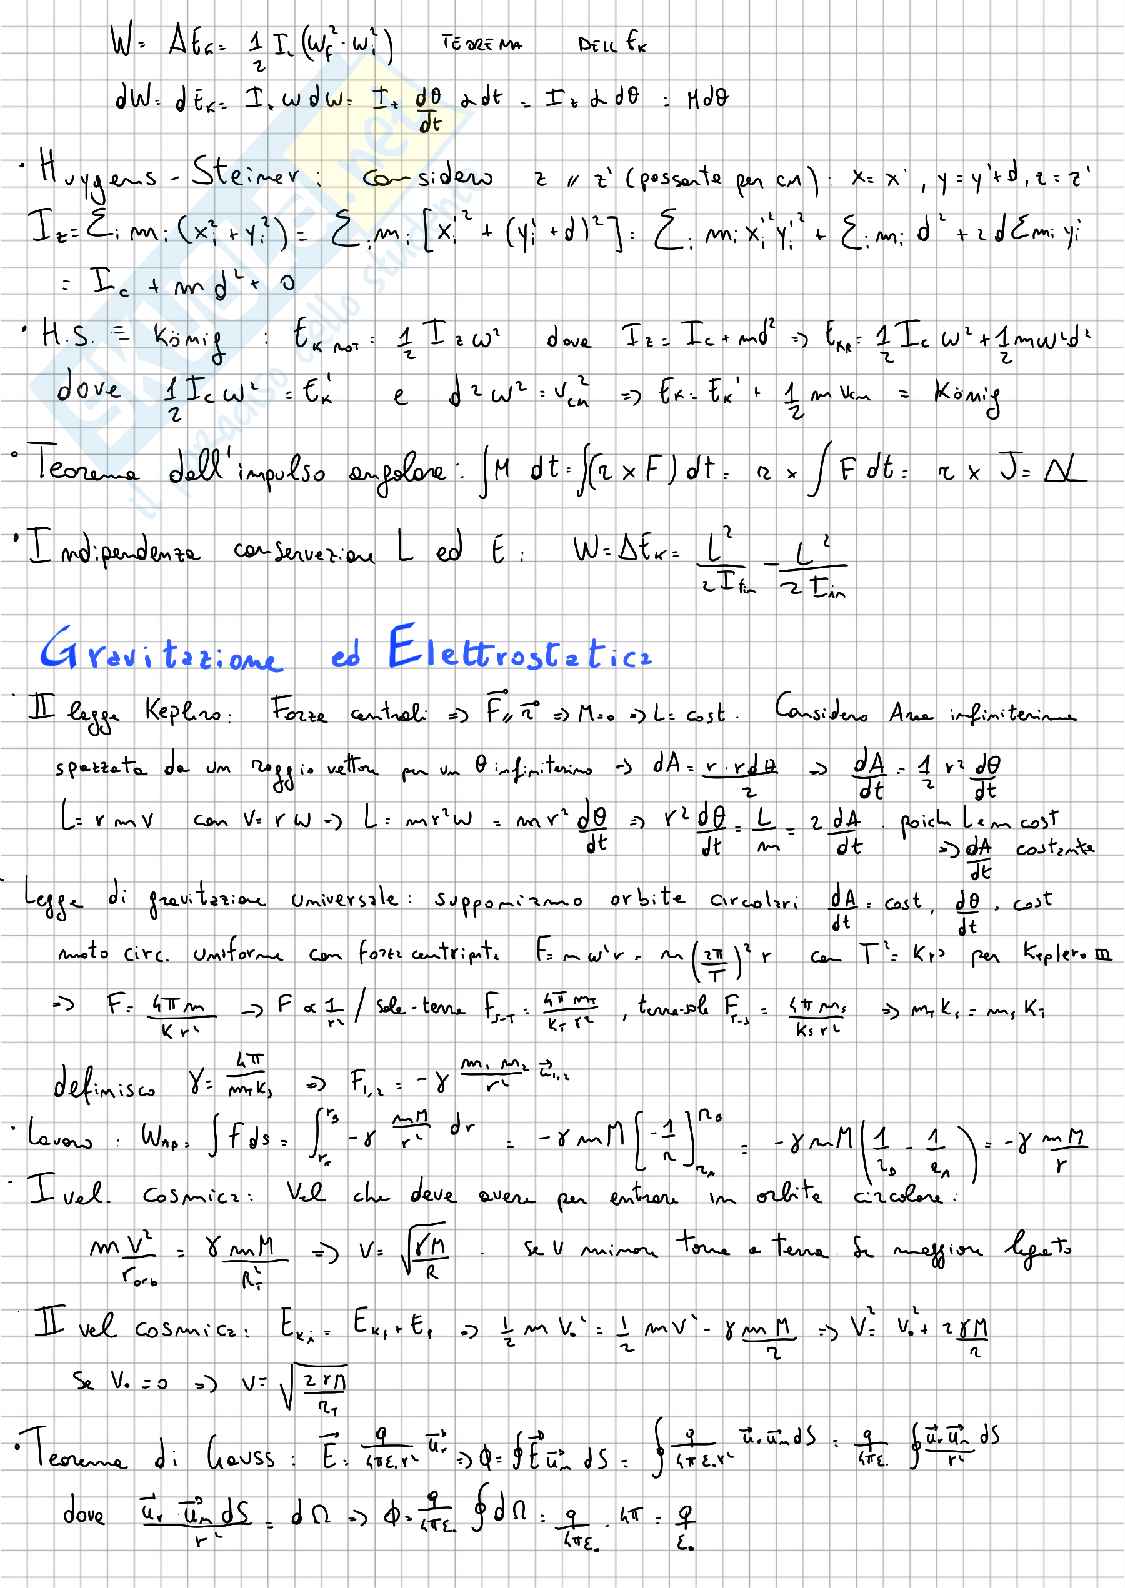 W = ΔE_K = 1/2 I_z (ω_f² - ω_i²) TEOREMA DELL E_K
dW = dE_K = I_z ω dω = I_z dθ/dt α dt = I_z α dθ = M dθ
· Huygens - Steiner : considero z // z' (passante per CM) : x = x' , y = y' + d , z = z'
I_z = Σ_i m_i (x_i² + y_i²) = Σ_i m_i [x_i'² + (y_i' + d)²] = Σ_i m_i x_i'² y_i'² + Σ_i m_i d² + 2 d Σ m_i y_i'
= I_c + m d² + 0
· H.S. ≡ König : E_K ROT = 1/2 I_z ω² dove I_z = I_c + md² => E_KR = 1/2 I_c ω² + 1/2 mω²d²
dove 1/2 I_c ω² = E_K' e d²ω² = v_cm² => E_K = E_K' + 1/2 m v_cm = König
· Teorema dell'impulso angolare : ∫M dt = ∫(r × F) dt = r × ∫F dt = r × J = ΔL
· Indipendenza conservazione L ed E : W = ΔE_K = L²/2I_fin - L²/2I_in
Gravitazione ed Elettrostatica
· II legge Keplero : Forze centrali => F⃗ // r⃗ => M=0 => L = cost . Considero Area infinitesima
spazzata da un raggio vettore per un θ infinitesimo -> dA = r · r dθ/2 => dA/dt = 1/2 r² dθ/dt
L = r m v con v = r ω -> L = mr²ω = mr² dθ/dt => r² dθ/dt = L/m = 2 dA/dt . poiché L e m cost
=> dA/dt costante
· Legge di gravitazione universale : supponiamo orbite circolari dA/dt = cost, dθ/dt = cost
moto circ. uniforme con forza centripeta F = mω²r = m (2π/T)² r con T² = Kr³ per Keplero III
=> F = 4π m/K r² -> F ∝ 1/r² / sole-terra F_S-T = 4π m_T/K_T r² , terra-sole F_T-S = 4π m_s/K_s r² => m_T K_s = m_s K_T
definisco γ = 4π/m_T K_s => F_1,2 = -γ m_1 m_2/r² u⃗_1,2
· Lavoro : W_AB = ∫F ds = ∫_{r_A}^{r_B} -γ mM/r² dr = -γ mM [-1/r]_{r_A}^{r_B} = -γ mM (1/r_B - 1/r_A) = -γ mM/r
· I vel. cosmica : Vel che deve avere per entrare in orbita circolare :
m v²/r_orb = γ mM/R_T² => v = √(γM/R) . se v minore torna a terra se maggiore legato
· II vel cosmica : E_Ki = E_Kf + E_f => 1/2 m v_0² = 1/2 m v² - γ mM/r => v² = v_0² + 2γM/r
Se v_0 = 0 => v = √(2γM/r_T)
· Teorema di Gauss : E⃗ = q/4πε_0 r² u⃗_r => Φ = ∮E⃗ u⃗_n dS = ∮ q/4πε_0 r² u⃗_r u⃗_n dS = q/4πε_0 ∮ u⃗_r u⃗_n dS/r²
dove u⃗_r u⃗_n dS/r² = dΩ => Φ = q/4πε_0 ∮dΩ = q/4πε_0 · 4π = q/ε_0